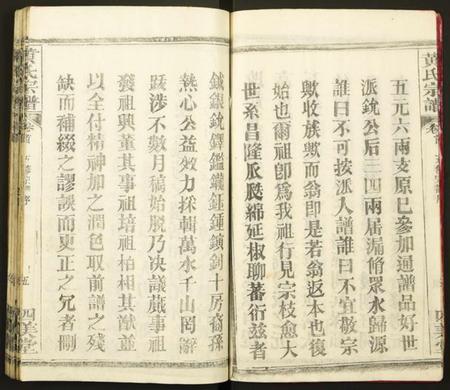 黃氏宗譜
卷首
四美堂
五元六兩支原已參加通譜品好世
派銃公后三四兩届漏脩眾水歸源
誰曰不可按派入譜誰曰不宜敬宗
收族歟而翁即是若翁返本也復
始也爾祖卽爲我祖行見宗枝愈大
世系昌隆瓜瓞綿延椒聊蕃衍茲者
鉞銀銃鐸鑑鐵鉦鍾鎮釗十房裔孫
熱心公益效力採輯萬水千山罔辭
跋涉不數月稿始脫乃决議蕆事祖
發祖興董其事祖培祖柏相其猷並
以全付精神加之潤色取前譜之殘
缺而補綴之謬誤而更正之冗者刪
黃氏宗譜
卷首
五
四美堂